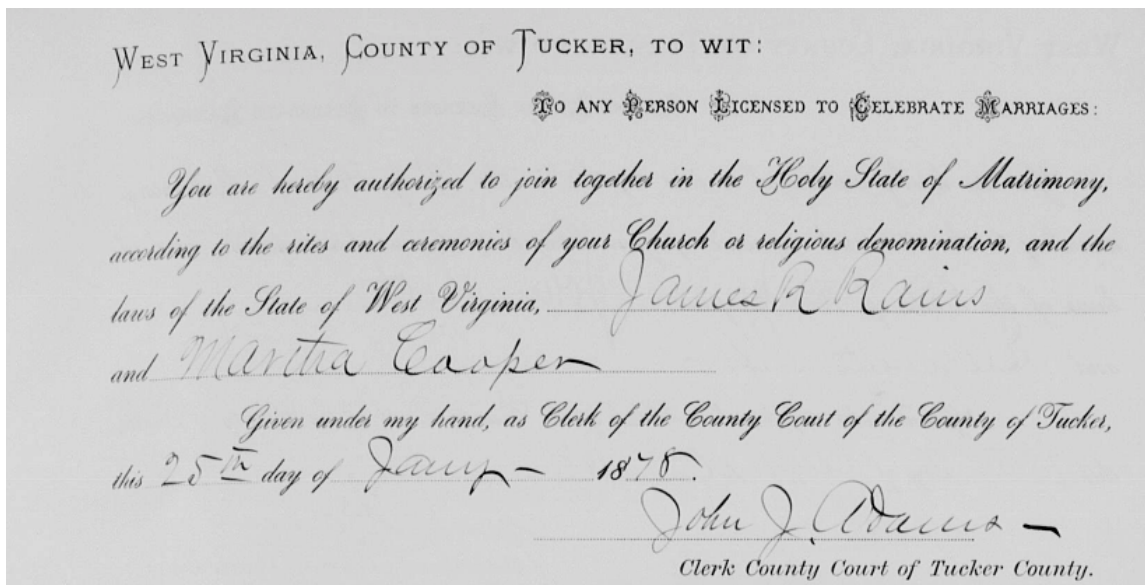 WEST VIRGINIA, COUNTY OF TUCKER, TO WIT:
TO ANY PERSON LICENSED TO CELEBRATE MARRIAGES:
You are hereby authorized to join together in the Holy State of Matrimony,
according to the rites and ceremonies of your Church or religious denomination, and the
laws of the State of West Virginia, James R Rains
and Martha Cooper
Given under my hand, as Clerk of the County Court of the County of Tucker,
this 25th day of Jany - 1878.
John J. Adams -
Clerk County Court of Tucker County.